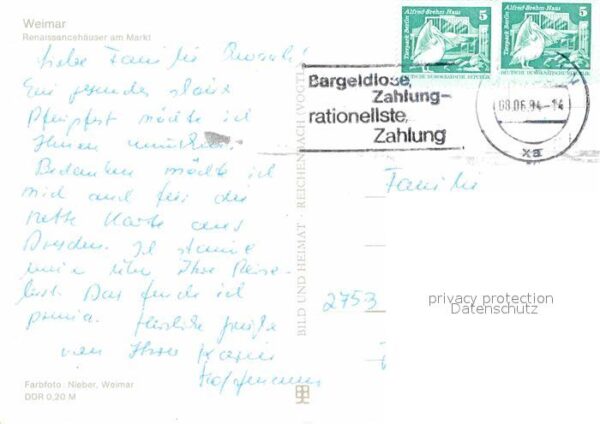 Weimar
Renaissancehäuser am Markt
Liebe Familie
Ein gesundes
Pfingstfest möchte ich
Ihnen wünschen.
Bedanken möchte ich
mich auch für die
nette Karte aus
Dresden. Ich staune
nur über Ihre Reise-
lust. Das finde ich
prima. Herzliche Grüße
von Ihrer Karin
Hoffmann
Farbfoto: Nieber, Weimar
DDR 0,20 M
BILD UND HEIMAT · REICHENBACH (VOGTL
Tierpark Berlin Alfred-Brehm-Haus 5
DEUTSCHE DEMOKRATISCHE
Tierpark Berlin Alfred-Brehm-Haus 5
DEUTSCHE DEMOKRATISCHE
Bargeldlose,
Zahlung-
rationellste,
Zahlung
08.06.84-14
xa
Familie
2753
privacy protection
Datenschutz